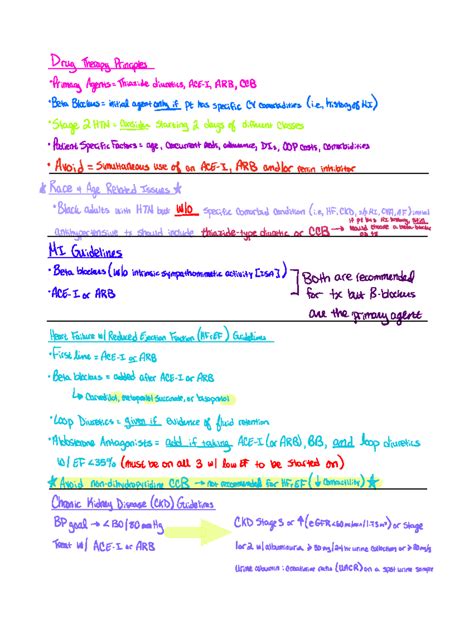 Drug Therapy Principles
•Primary Agents = Thiazide diuretics, ACE-I, ARB, CCB
•Beta Blockers = initial agent only if pt has specific CV comorbidities (i.e., history of MI)
•Stage 2 HTN = consider starting 2 drugs of different classes
•Patient Specific Factors = age, concurrent meds, adherence, DIs, OOP costs, comorbidities
•Avoid = Simultaneous use of an ACE-I, ARB and/or renin inhibitor
★ Race & Age Related Issues ★
•Black adults with HTN but w/o specific comorbid condition (i.e., HF, CKD, initial
antihypertensive tx should include thiazide-type diuretic or CCB →
MI Guidelines
•Beta blockers (w/o intrinsic sympathomimetic activity [ISA])
•ACE-I or ARB
Both are recommended
for tx but B-blockers
are the primary agent
Heart Failure w/ Reduced Ejection Fraction (HFrEF) Guidelines
•First line = ACE-I or ARB
•Beta blockers = added after ACE-I or ARB
↳ Carvedilol, metoprolol succinate, or bisoprolol
•Loop Diuretics = given if evidence of fluid retention
•Aldosterone Antagonists = add if taking ACE-I (or ARB), BB, and loop diuretics
w/ EF <35% (must be on all 3 w/ low EF to be started on)
★ Avoid non-dihydropyridine CCB → not recommended for HFrEF (↓ Contractility) ★
Chronic Kidney Disease (CKD) Guidelines
BP goal → <130/80 mmHg
Treat w/ ACE-I or ARB
CKD Stage 3 or ↑ (eGFR <60 mL/min/1.73m²) or Stage
1 or 2 w/ albuminuria ≥
Urine albumin : creatinine ratio (UACR) on a spot urine sample